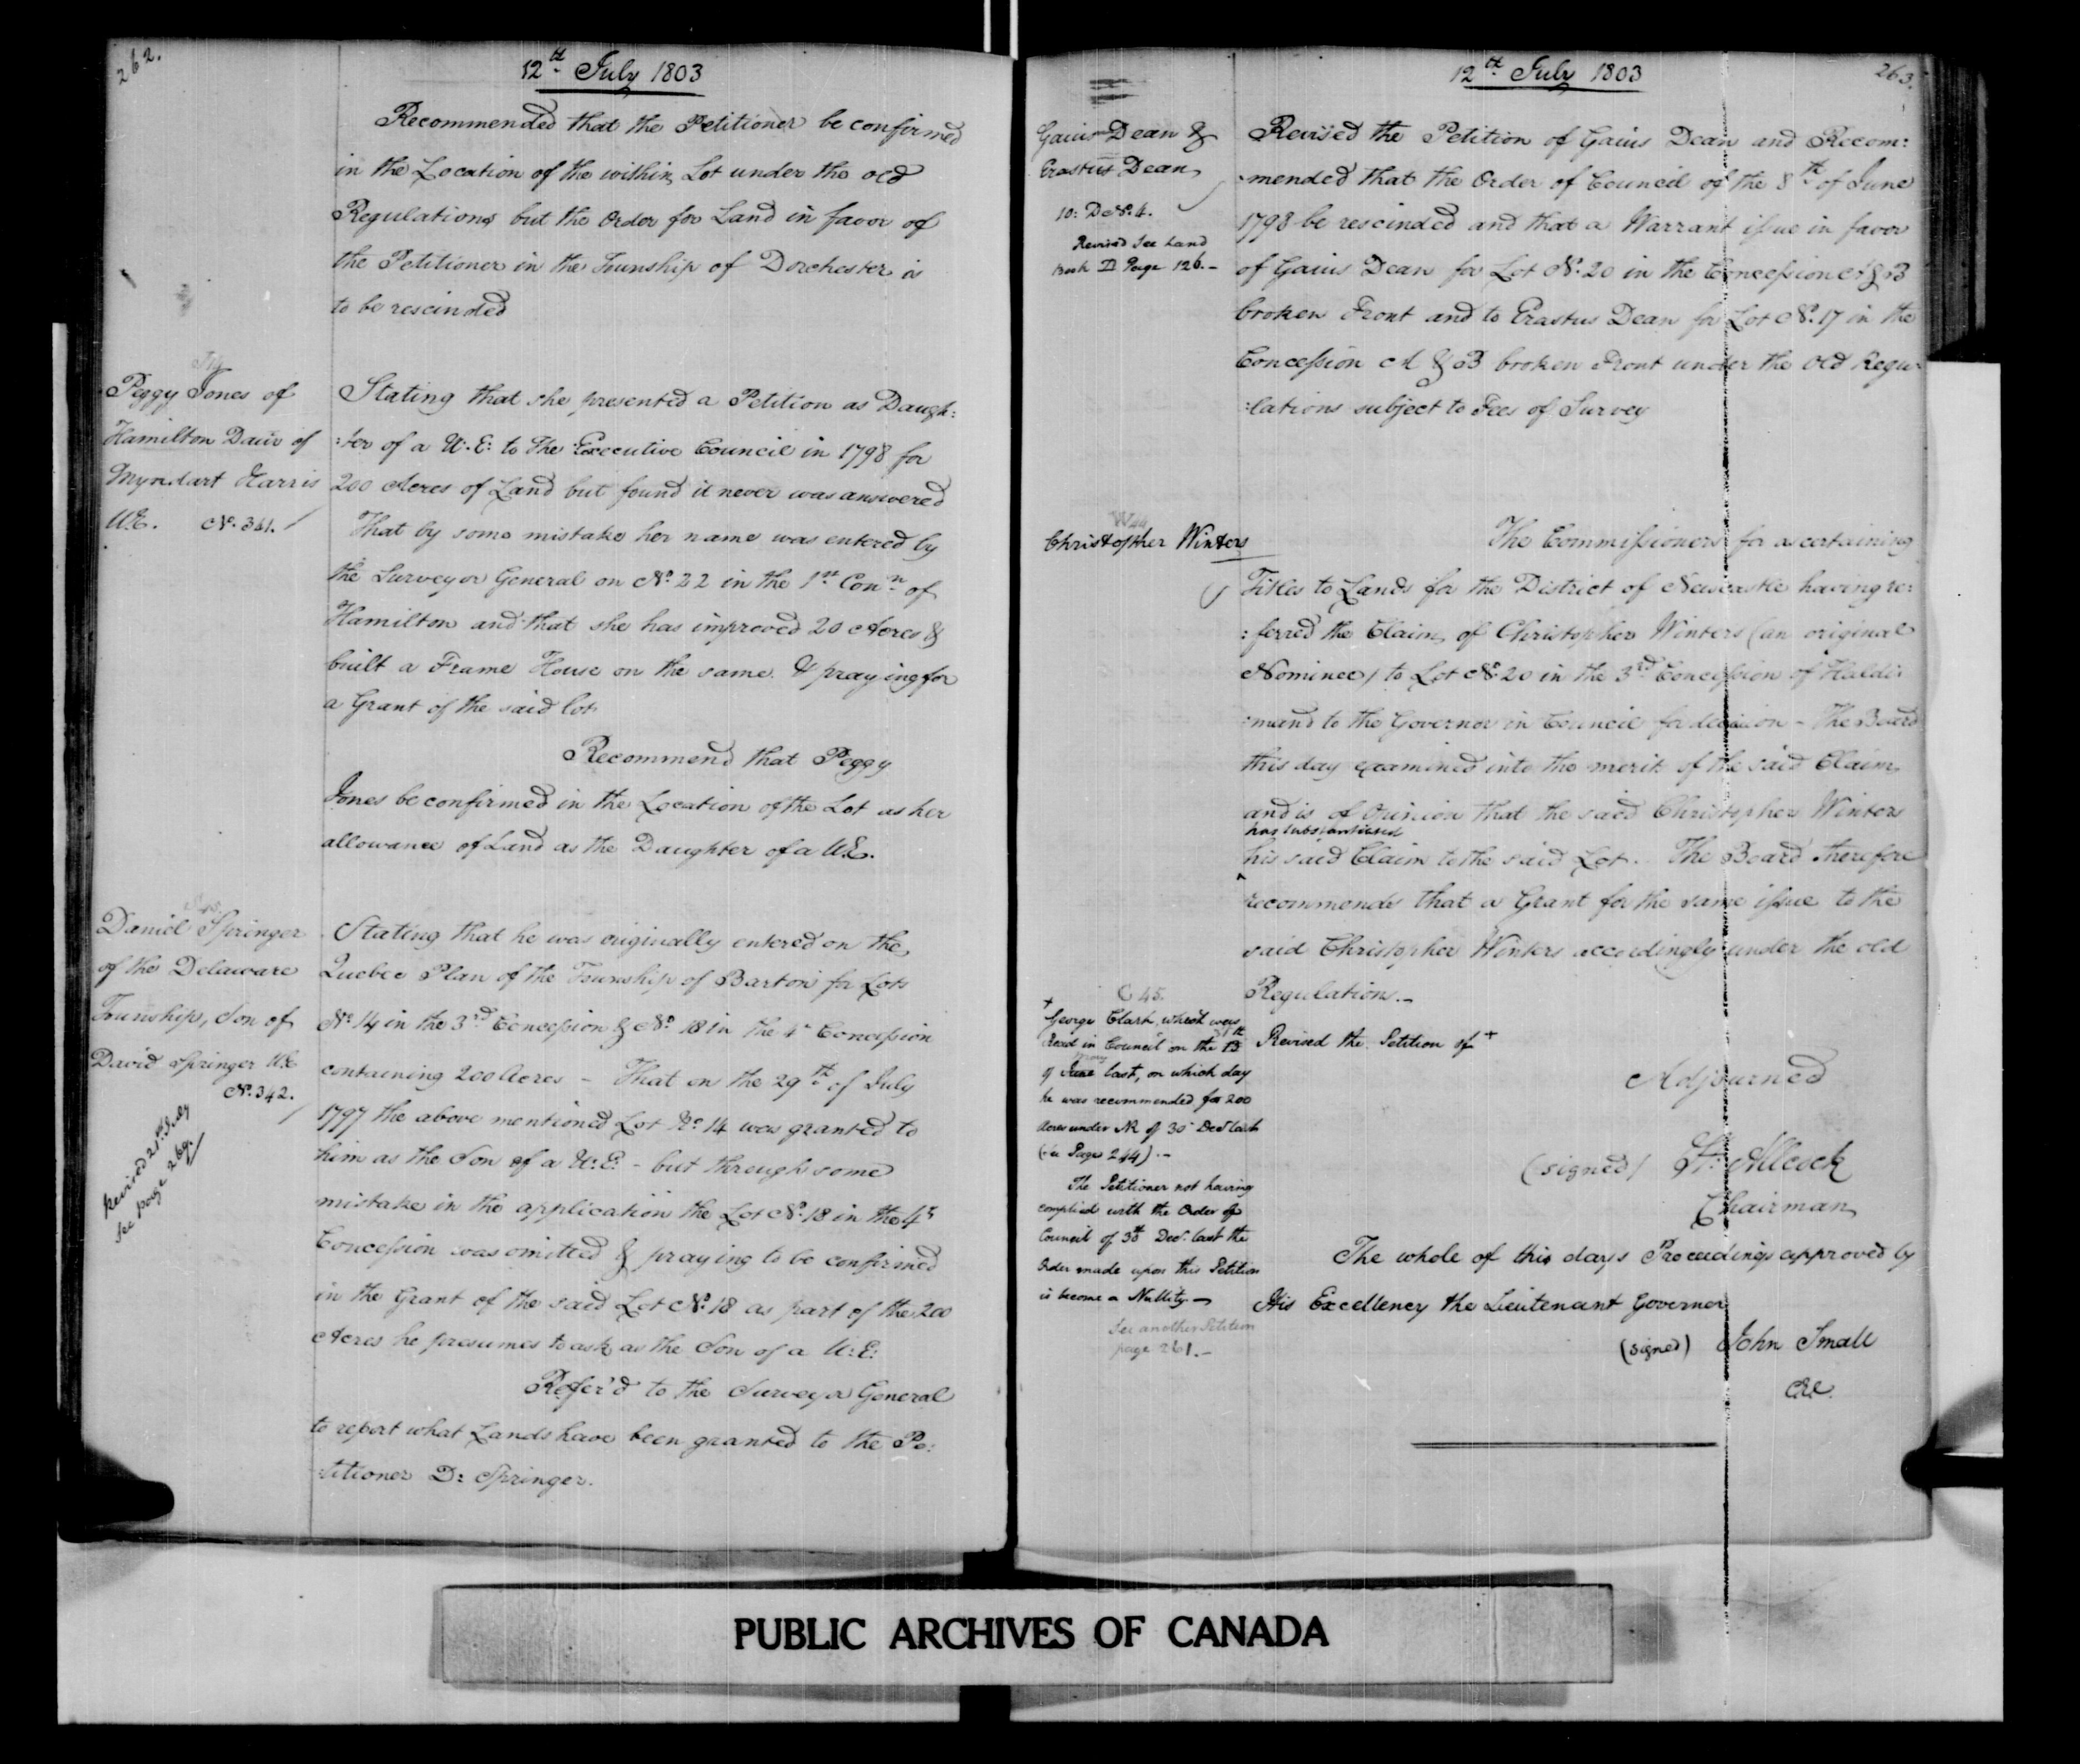 262.
12th July 1803
Recommended that the Petitioner be confirmed
in the Location of the within Lot under the old
Regulations but the Order for Land in favor of
the Petitioner in the Township of Dorchester is
to be rescinded
Peggy Jones of
Hamilton Daur of
Myndart Harris
UE. No. 341.
Stating that she presented a Petition as Daugh:
:ter of a U.E: to the Executive Council in 1798 for
200 Acres of Land but found it never was answered
That by some mistake her name was entered by
the Surveyor General on No. 22 in the 1st Conn. of
Hamilton and that she has improved 20 Acres &
built a Frame House on the same. & praying for
a Grant of the said lot
Recommend that Peggy
Jones be confirmed in the Location of the Lot as her
allowance of Land as the Daughter of a UE.
Daniel Springer
of the Delaware
Township, Son of
David Springer UE
No. 342.
Revised 21st July
See page 269.
Stating that he was originally entered on the
Quebec Plan of the Township of Barton for Lots
No. 14 in the 3rd Concession & No. 18 in the 4th Concession
containing 200 Acres - That on the 29th of July
1797 the above mentioned Lot No. 14 was granted to
him as the Son of a U:E: - but through some
mistake in the application the Lot No. 18 in the 4th
Concession was omitted & praying to be confirmed
in the Grant of the said Lot No. 18 as part of the 200
Acres he presumes to ask as the Son of a U:E:
Refer'd to the Surveyor General
to report what Lands have been granted to the Pe:
:titioner D: Springer.
263.
12th July 1803
Gaius Dean &
Erastus Dean
10: D No. 4.
Revised See Land
Book D Page 126.-
Revised the Petition of Gaius Dean and Recom:
:mended that the Order of Council of the 8th of June
1798 be rescinded and that a Warrant issue in favor
of Gaius Dean for Lot No. 20 in the Concession A & B
broken Front and to Erastus Dean for Lot No. 17 in the
Concession A & B broken Front under the Old Regu:
:lations subject to Fees of Survey
Christopher Winters
The Commissioners for ascertaining
Titles to Lands for the District of Newcastle having re:
:ferred the Claim of Christopher Winters (an original
Nominee) to Lot No. 20 in the 3rd Concession of Haldi:
:mand to the Governor in Council for decision - The Board
this day examined into the merits of the said Claim
and is of Opinion that the said Christopher Winters
has substantiated
his said Claim to the said Lot. The Board therefore
recommends that a Grant for the same issue to the
said Christopher Winters accordingly under the old
Regulation.-
Revised the Petition of +
C 45.
+
George Clark, which was
Read in Council on the 13th
May
of June last, on which day
he was recommended for 200
Acres under R of 30 Decr last
(See Page 244).-
The Petitioner not having
complied with the Order of
Council of 30th Decr. last the
Order made upon this Petition
is become a Nullity -
See another Petition
page 261.-
Adjourned
(signed) H: Allcock
Chairman
The whole of this days Proceedings approved by
His Excellency the Lieutenant Governor
(signed) John Small
CEC.
PUBLIC ARCHIVES OF CANADA